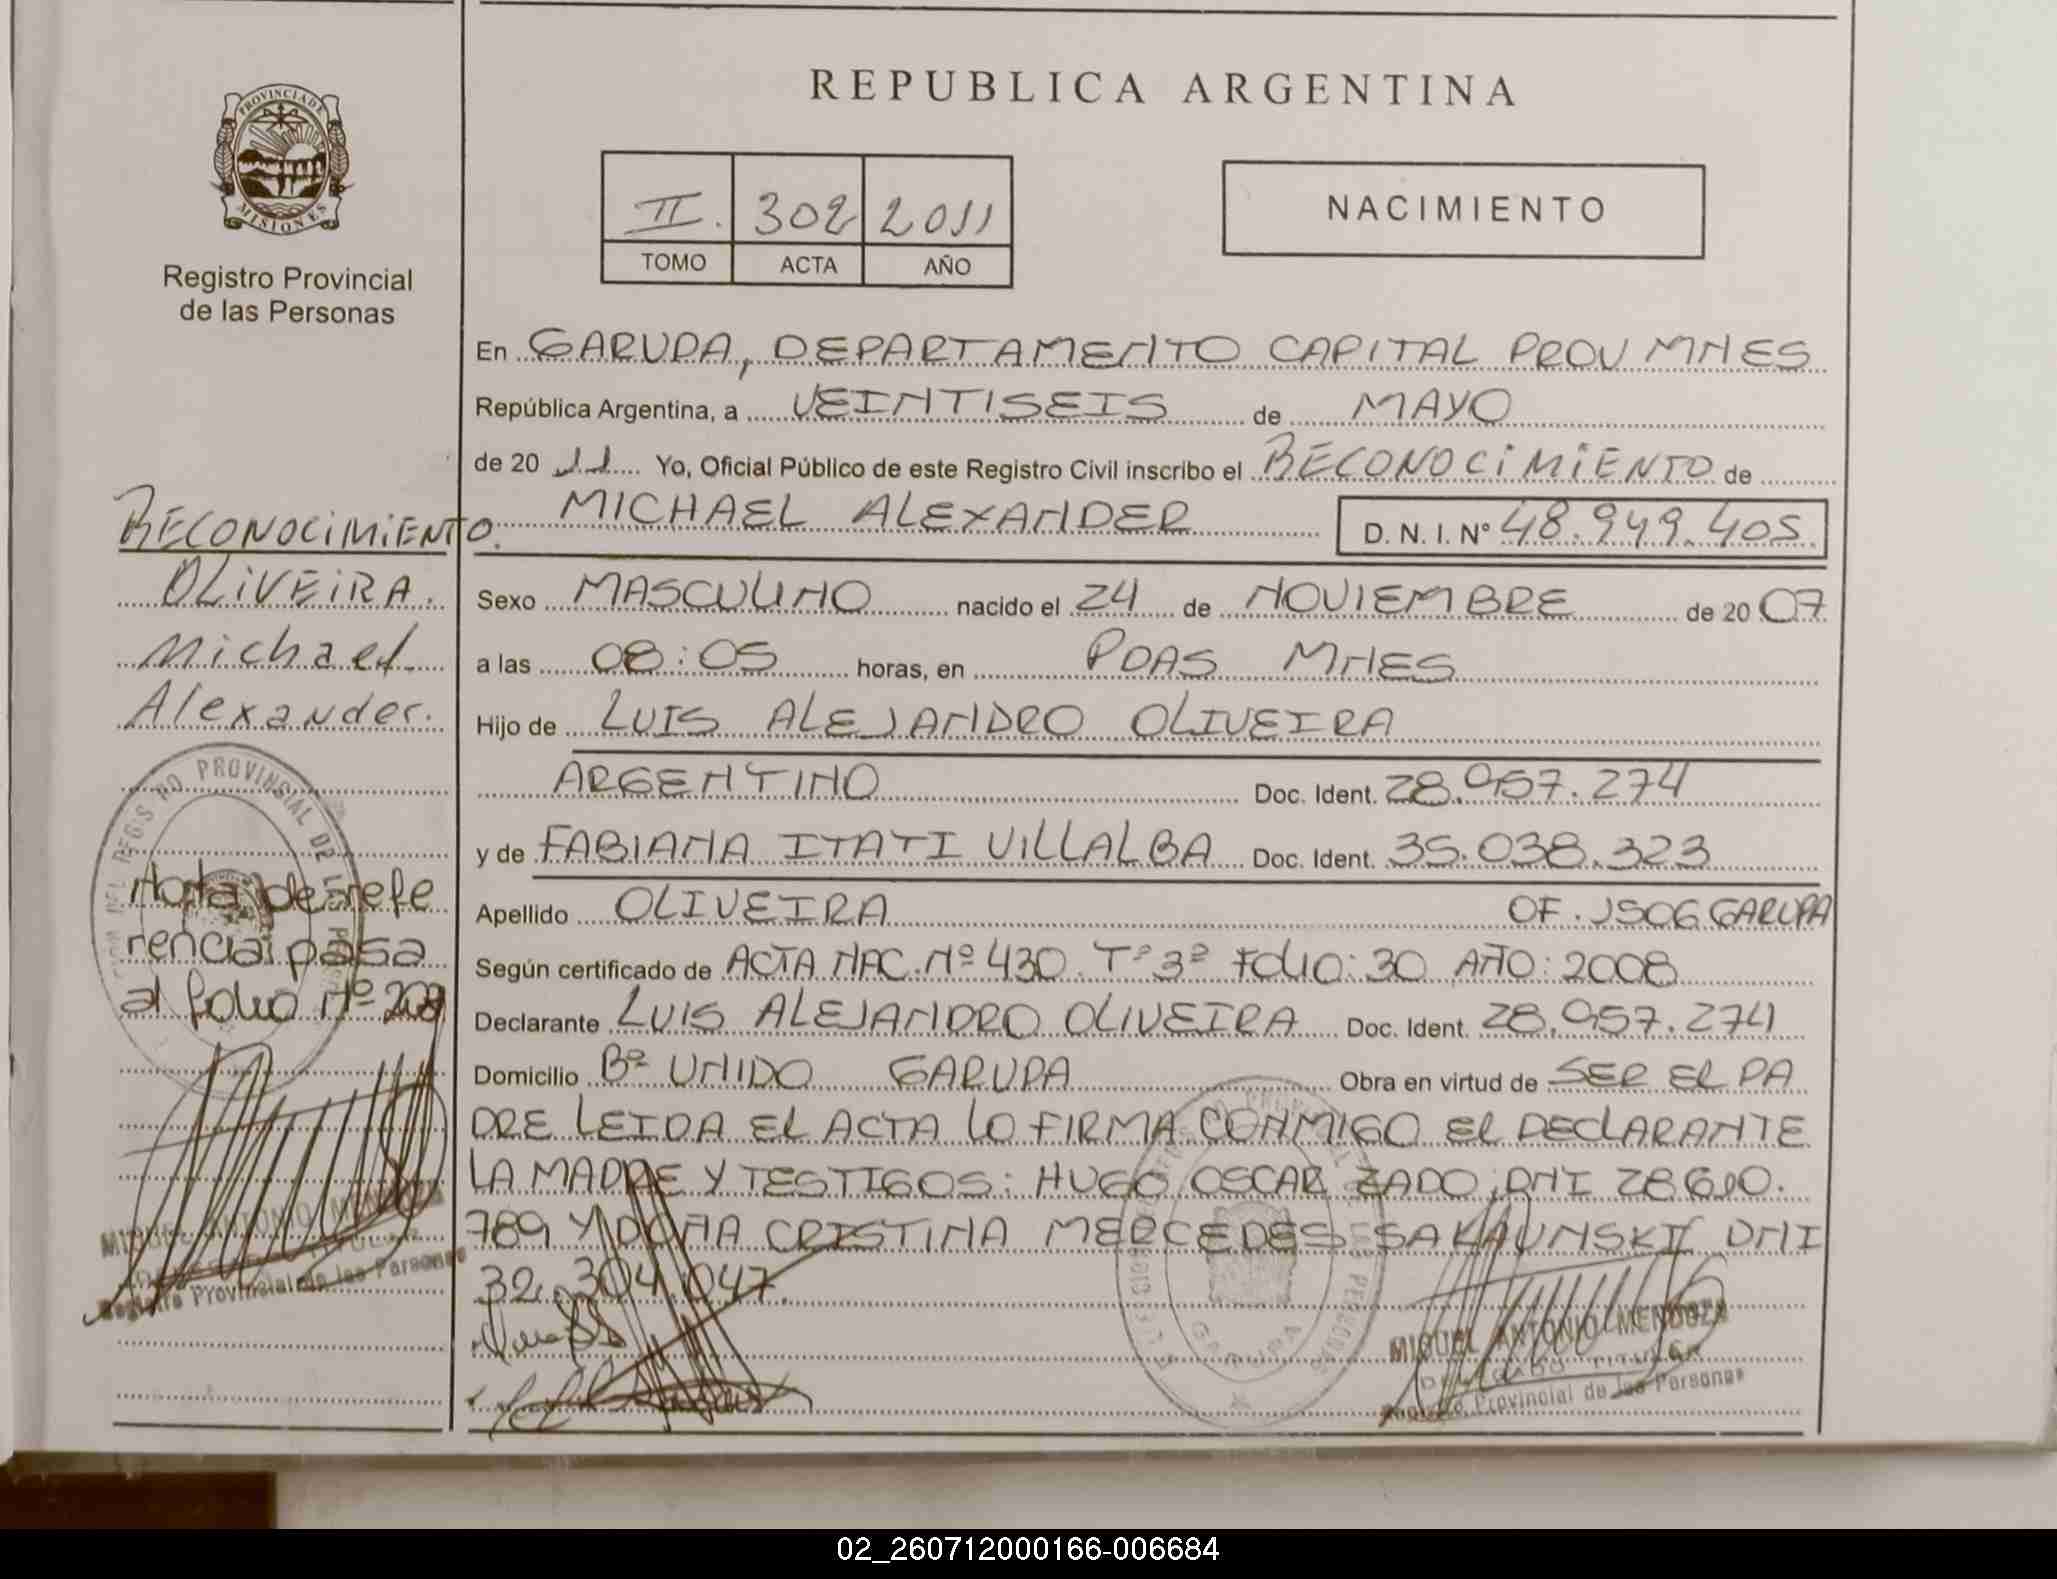 REPUBLICA ARGENTINA
PROVINCIA DE
MISIONES
Registro Provincial
de las Personas
II. 302 2011
TOMO ACTA AÑO
NACIMIENTO
En GARUPA, DEPARTAMENTO CAPITAL PROV MNES
República Argentina, a VEINTISEIS de MAYO
de 20 11 Yo, Oficial Público de este Registro Civil inscribo el RECONOCIMIENTO de
MICHAEL ALEXANDER D. N. I. Nº 48.949.405.
Sexo MASCULINO nacido el 24 de NOVIEMBRE de 20 07
a las 08:05 horas, en PDAS MNES
Hijo de LUIS ALEJANDRO OLIVEIRA
ARGENTINO Doc. Ident. 28.957.274
y de FABIANA ITATI VILLALBA Doc. Ident. 35.038.323
Apellido OLIVEIRA OF. JSOG GARUPA
Según certificado de ACTA NAC. Nº 430. Tº 3º FOLIO: 30 AÑO: 2008
Declarante LUIS ALEJANDRO OLIVEIRA Doc. Ident. 28.957.274
Domicilio Bº UNIDO GARUPA Obra en virtud de SER EL PA
DRE LEIDA EL ACTA LO FIRMA CONMIGO EL DECLARANTE
LA MADRE Y TESTIGOS: HUGO OSCAR ZADO, DNI
789 Y DOÑA CRISTINA MERCEDES DNI
32.304.047.
RECONOCIMIENTO.
OLIVEIRA.
Michael
Alexander.
Nota de refe
rencia pasa
al folio Nº
MIGUEL ANTONIO MENDOZA
Registro Provincial de las Personas
GARUPA
MIGUEL ANTONIO MENDOZA
DELEGADO TITULAR
Registro Provincial de las Personas
02_260712000166-006684